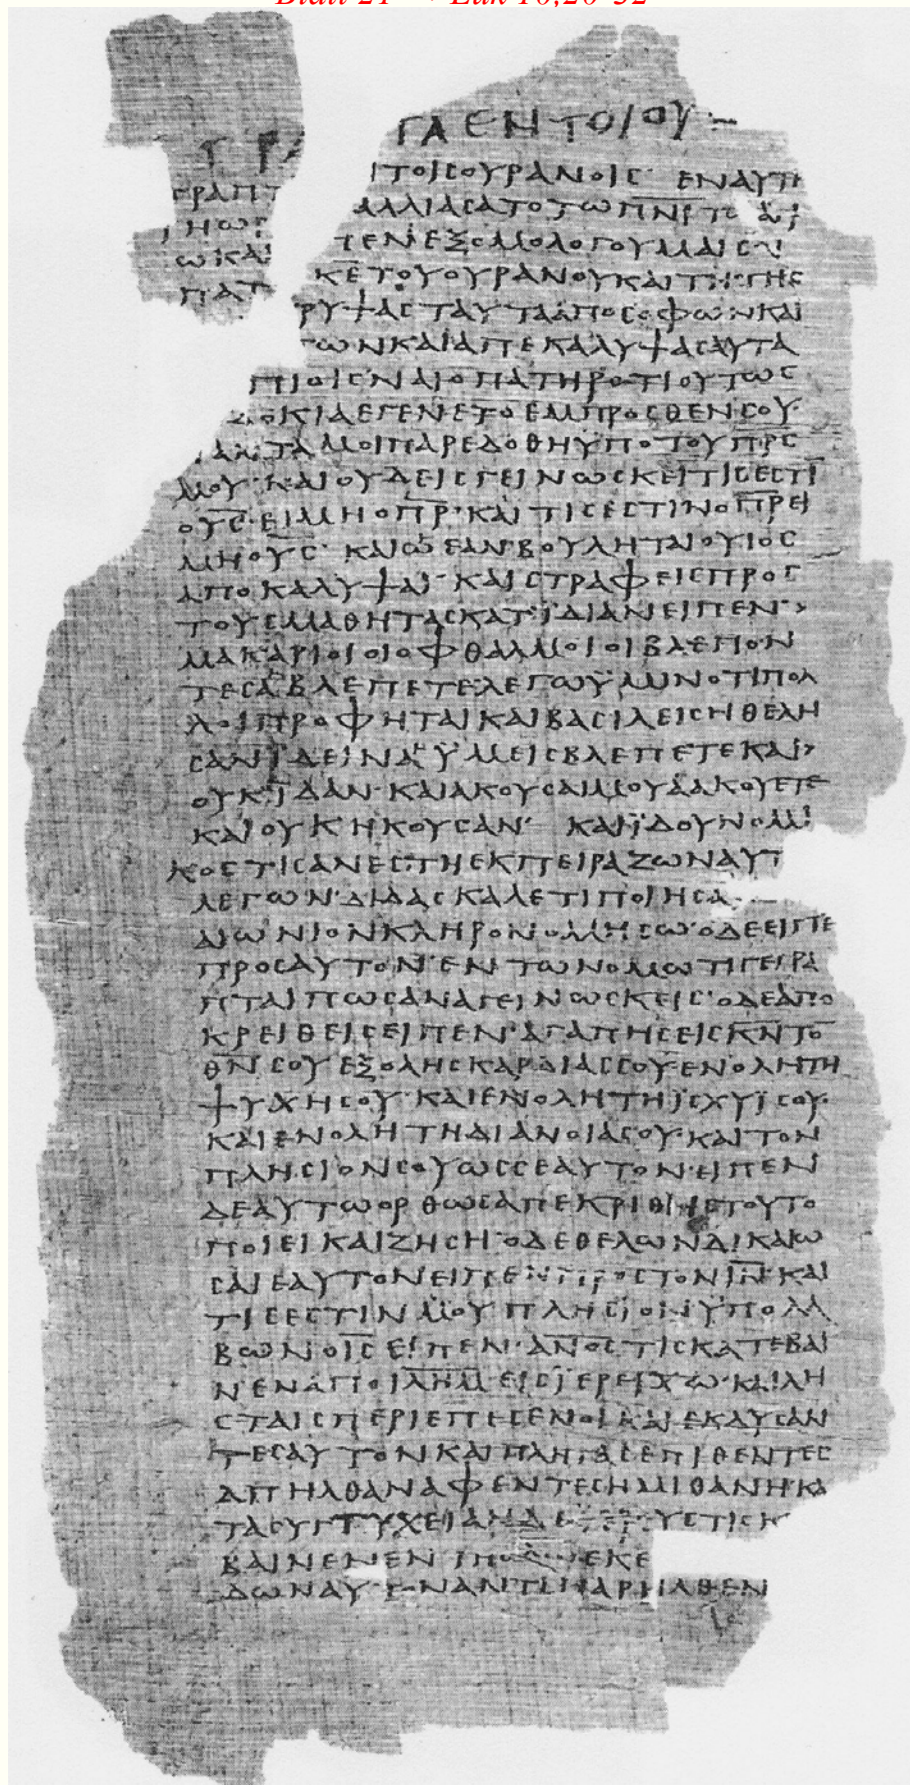 Blatt 21 Luk 10,20-32
ΓΑΕΝΤΟΙΟΥ
ΓΡΑΠΤ ΙΤΟΙΣΟΥΡΑΝΟΙΣ· ΕΝΑΥΤΗ
ΤΗΩΡ ΑΛΛΙΑΣΑΤΟΤΩΠΝΙ ΤΩ ΑΓΙ
ΩΚΑΙ ΠΕΝΕΞΟΜΟΛΟΓΟΥΜΑΙΣΟΙ
ΠΑΤ ΚΕΤΟΥΟΥΡΑΝΟΥΚΑΙΤΗΣΓΗΣ
ΡΥΨΑΣΤΑΥΤΑΑΠΟΣΟΦΩΝΚΑΙ
ΤΩΝΚΑΙΑΠΕΚΑΛΥΨΑΣΑΥΤΑ
ΠΙΟΙΣΝΑΙΟΠΑΤΗΡΟΤΙΟΥΤΩΣ
ΔΟΚΙΑΕΓΕΝΕΤΟΕΜΠΡΟΣΘΕΝΣΟΥ·
ΠΑΝΤΑΜΟΙΠΑΡΕΔΟΘΗΫΠΟΤΟΥΠΡΣ
ΜΟΥ·ΚΑΙΟΥΔΕΙΣΓΕΙΝΩΣΚΕΙΤΙΣΕΣΤΙ
ΟΥΣ·ΕΙΜΗΟΠΡ·ΚΑΙΤΙΣΕΣΤΙΝΟΠΡΕΙ
ΜΗΟΥΣ· ΚΑΙΩΕΑΝΒΟΥΛΗΤΑΙΟΥΙΟΣ
ΑΠΟΚΑΛΥΨΑΙ·ΚΑΙΣΤΡΑΦΕΙΣΠΡΟΣ
ΤΟΥΣΜΑΘΗΤΑΣΚΑΤΪΔΙΑΝΕΙΠΕΝ·>
ΜΑΚΑΡΙΟΙΟΙΟΦΘΑΛΜΟΙΟΙΒΛΕΠΟΝ
ΤΕΣΑΒΛΕΠΕΤΕΛΕΓΩΫΜΙΝΟΤΙΠΟΛ
ΛΟΙΠΡΟΦΗΤΑΙΚΑΙΒΑΣΙΛΕΙΣΗΘΕΛΗ
ΣΑΝΪΔΕΙΝΑΫΜΕΙΣΒΛΕΠΕΤΕΚΑΙ>
ΟΥΚΪΔΑΝ·ΚΑΙΑΚΟΥΣΑΙΜΟΥΑΑΚΟΥΕΤΕ
ΚΑΙΟΥΚΗΚΟΥΣΑΝ· ΚΑΙΪΔΟΥΝΟΜΙ
ΚΟΣΤΙΣΑΝΕΣΤΗΕΚΠΕΙΡΑΖΩΝΑΥΤ
ΛΕΓΩΝ·ΔΙΔΑΣΚΑΛΕΤΙΠΟΙΗΣΑ
ΑΙΩΝΙΟΝΚΛΗΡΟΝΟΜΗΣΩ·ΟΔΕΕΙΠΕ
ΠΡΟΣΑΥΤΟΝ·ΕΝΤΩΝΟΜΩΤΙΓΕΓΡΑ
ΠΤΑΙΠΩΣΑΝΑΓΕΙΝΩΣΚΕΙΣ·ΟΔΕΑΠΟ
ΚΡΕΙΘΕΙΣΕΙΠΕΝ·ΑΓΑΠΗΣΕΙΣΚΝΤΟ
ΘΝΣΟΥΕΞΟΛΗΣΚΑΡΔΙΑΣΣΟΥ·ΕΝΟΛΗΤΗ
ΨΥΧΗΣΟΥ·ΚΑΙΕΝΟΛΗΤΗΪΣΧΥΪΣΟΥ·
ΚΑΙΕΝΟΛΗΤΗΔΙΑΝΟΙΑΣΟΥ·ΚΑΙΤΟΝ
ΠΛΗΣΙΟΝΣΟΥΩΣΣΕΑΥΤΟΝ·ΕΙΠΕΝ
ΔΕΑΥΤΩΟΡΘΩΣΑΠΕΚΡΙΘΗΣΤΟΥΤΟ
ΠΟΙΕΙΚΑΙΖΗΣΗ·ΟΔΕΘΕΛΩΝΔΙΚΑΙΩ
ΣΑΙΕΑΥΤΟΝΕΙΠΕΝΠΡΟΣΤΟΝΙΗΝΚΑΙ
ΤΙΣΕΣΤΙΝΜΟΥΠΛΗΣΙΟΝΫΠΟΛΑ
ΒΩΝΟΙΣΕΙΠΕΝ·ΑΝΟΣΤΙΣΚΑΤΕΒΑΙ
ΝΕΝΑΠΟΙΛΗΜΕΙΣΪΕΡΕΙΧΩ·ΚΑΙΛΗ
ΣΤΑΙΣΠΕΡΙΕΠΕΣΕΝΟΙΚΑΙΕΚΔΥΣΑΝ
ΤΕΣΑΥΤΟΝΚΑΙΠΛΗΓΑΣΕΠΙΘΕΝΤΕΣ
ΑΠΗΛΘΑΝΑΦΕΝΤΕΣΗΜΙΘΑΝΗ·ΚΑ
ΤΑΣΥΓΤΥΧΕΙΑΝΔΕΙΕΡΕΥΣΤΙΣΚ
ΒΑΙΝΕΝΕΝ ΕΚΕ
ΔΩΝΑΥ ΝΑΝΤΙΠΑΡΗΛΘΕΝ